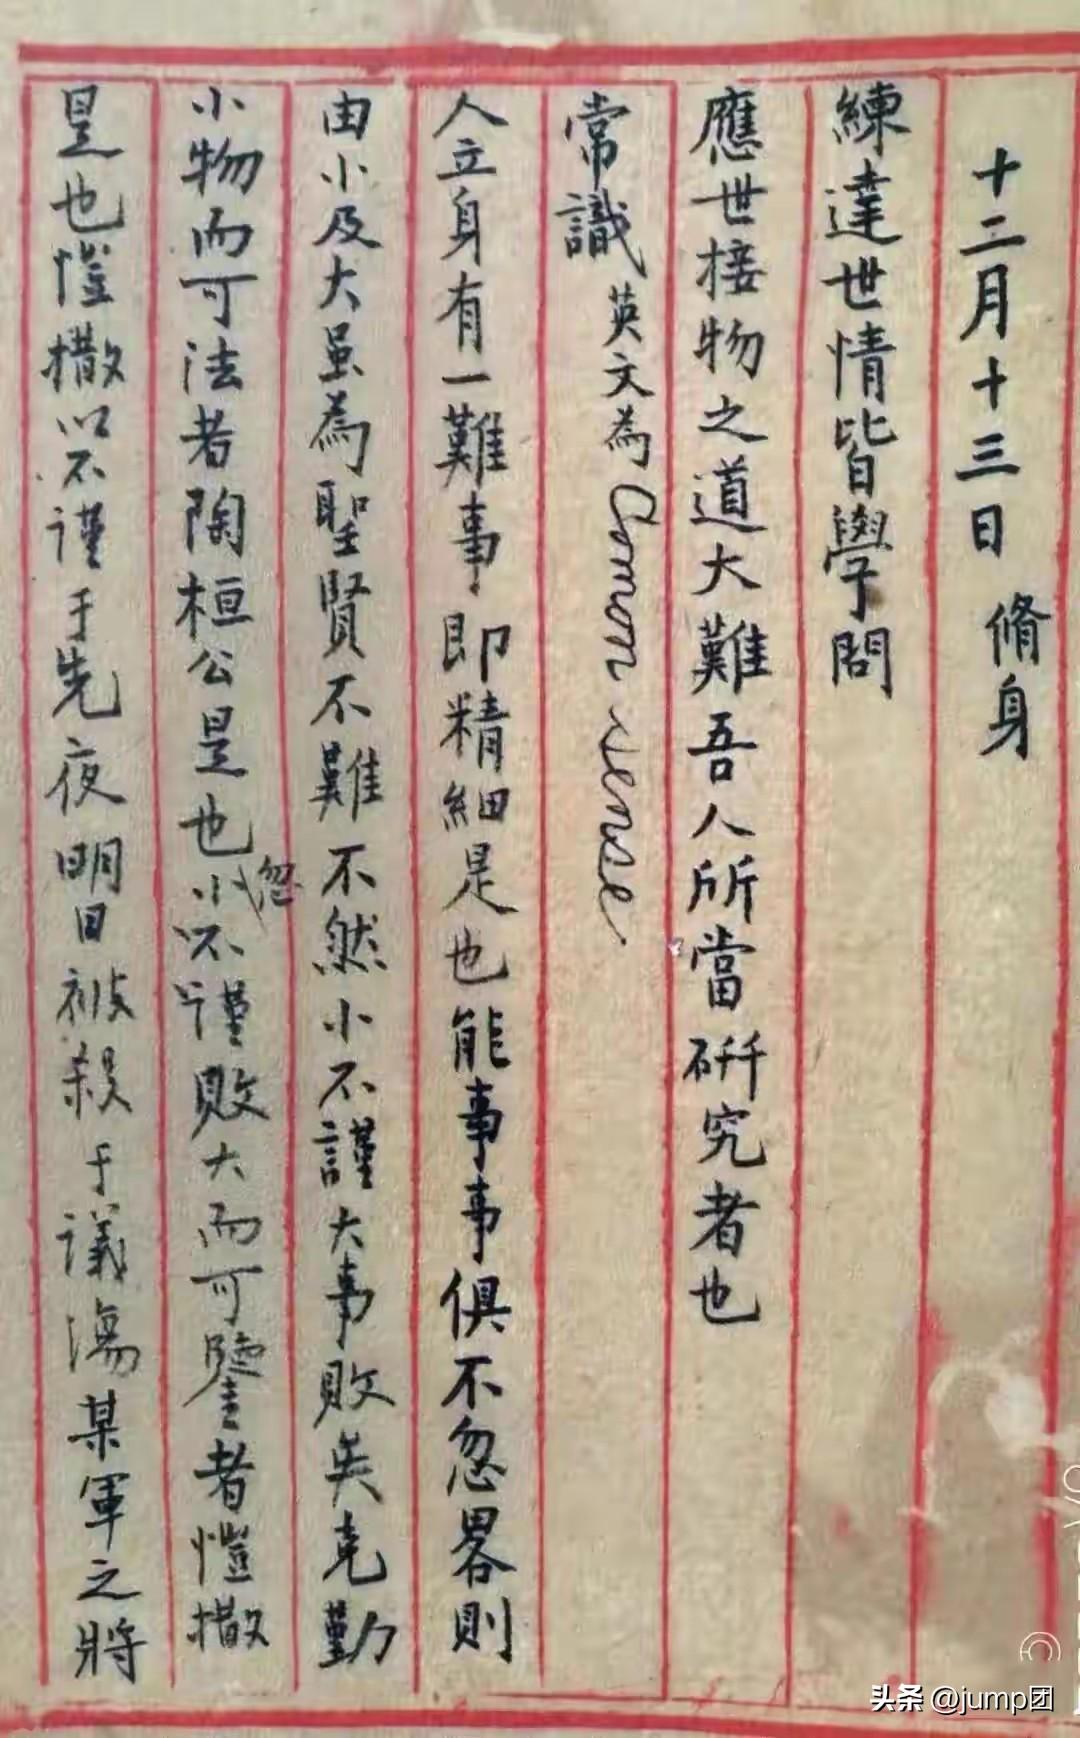 十二月十三日 脩身
練達世情皆學問
應世接物之道大難吾人所當硏究者也
常識 英文為 Comon sense
人立身有一難事即精細是也能事事俱不忽畧則
由小及大虽為聖賢不難不然小不謹大事敗矣克勤
小物而可法者陶桓公是也小忽不謹敗大而可鑒者愷撒
是也愷撒以不谨于先夜明日被殺于議瀉某軍之將
头条 @jump团